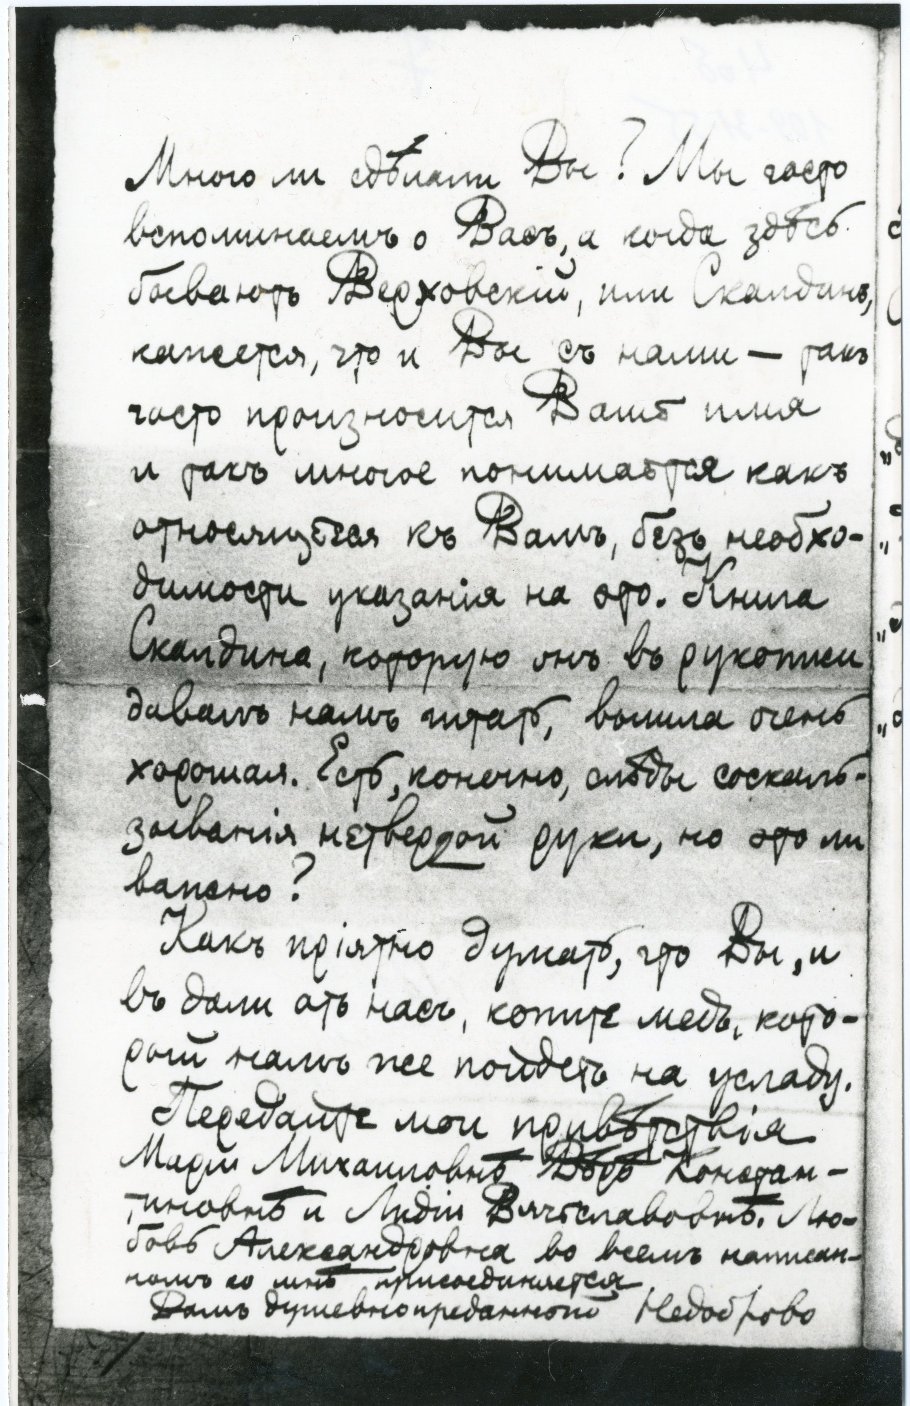 Много ли сдѣлали Вы? Мы часто
вспоминаемъ о Васъ, а когда здѣсь
бываютъ Верховскій, или Скалдинъ,
кажется, что и Вы съ нами — такъ
часто произносится Ваше имя
и такъ многое понимается какъ
относящееся къ Вамъ, безъ необхо-
димости указанія на это. Книга
Скалдина, которую онъ въ рукописи
давалъ намъ читать, вышла очень
хорошая. Есть, конечно, слѣды соскаль-
зыванія нетвердой руки, но это ли
важно?
Какъ пріятно думать, что Вы, и
въ дали отъ насъ, копите медъ, кото-
рый намъ же пойдетъ на усладу.
Передайте мои привѣтствія
Маріи Михайловнѣ Вѣрѣ Констан-
тиновнѣ и Лидіи Вячеславовнѣ. Лю-
бовь Александровна во всемъ написан-
номъ ко мнѣ присоединяется
Вамъ душевнопреданного Недоброво